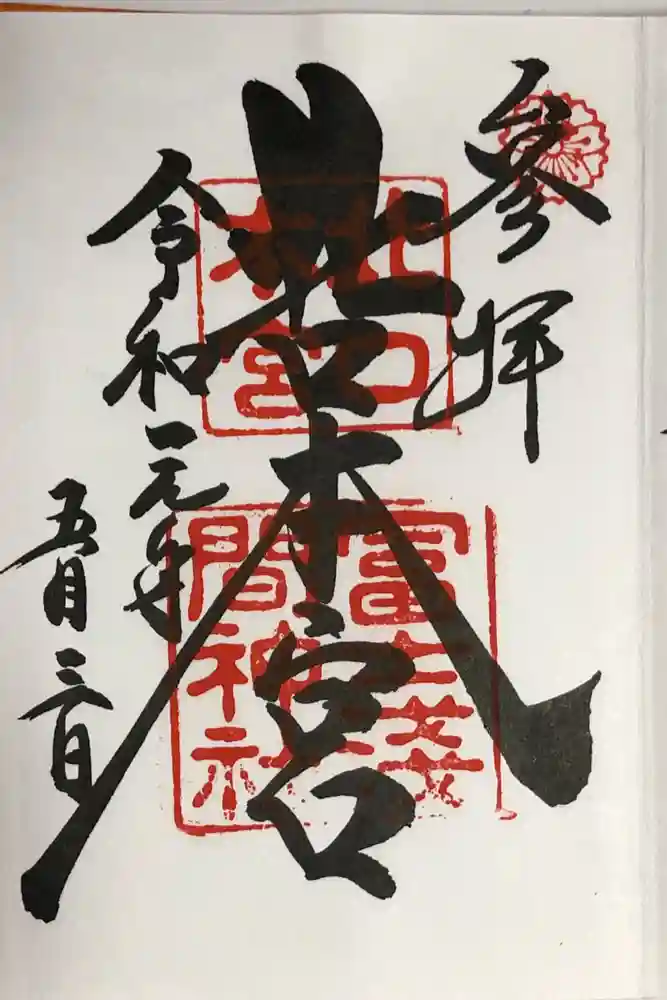 参拝
北口本宮
令和元年
五月三日
北口
本宮
冨士淺
間神社